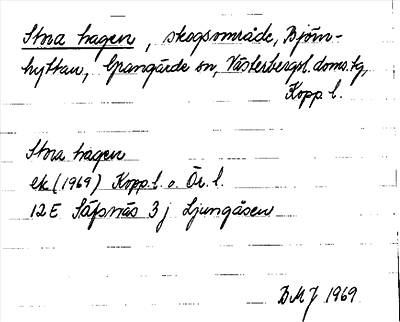 Stora hagen, skogsområde, Björn-
hyttan, Grangärde sn, Västerbergsl. doms. tg,
Kopp. l.
Stora hagen
ek (1969) Kopp. l. o. Ör. l.
12 E Säfsnäs 3 j Ljungåsen
BMJ 1969